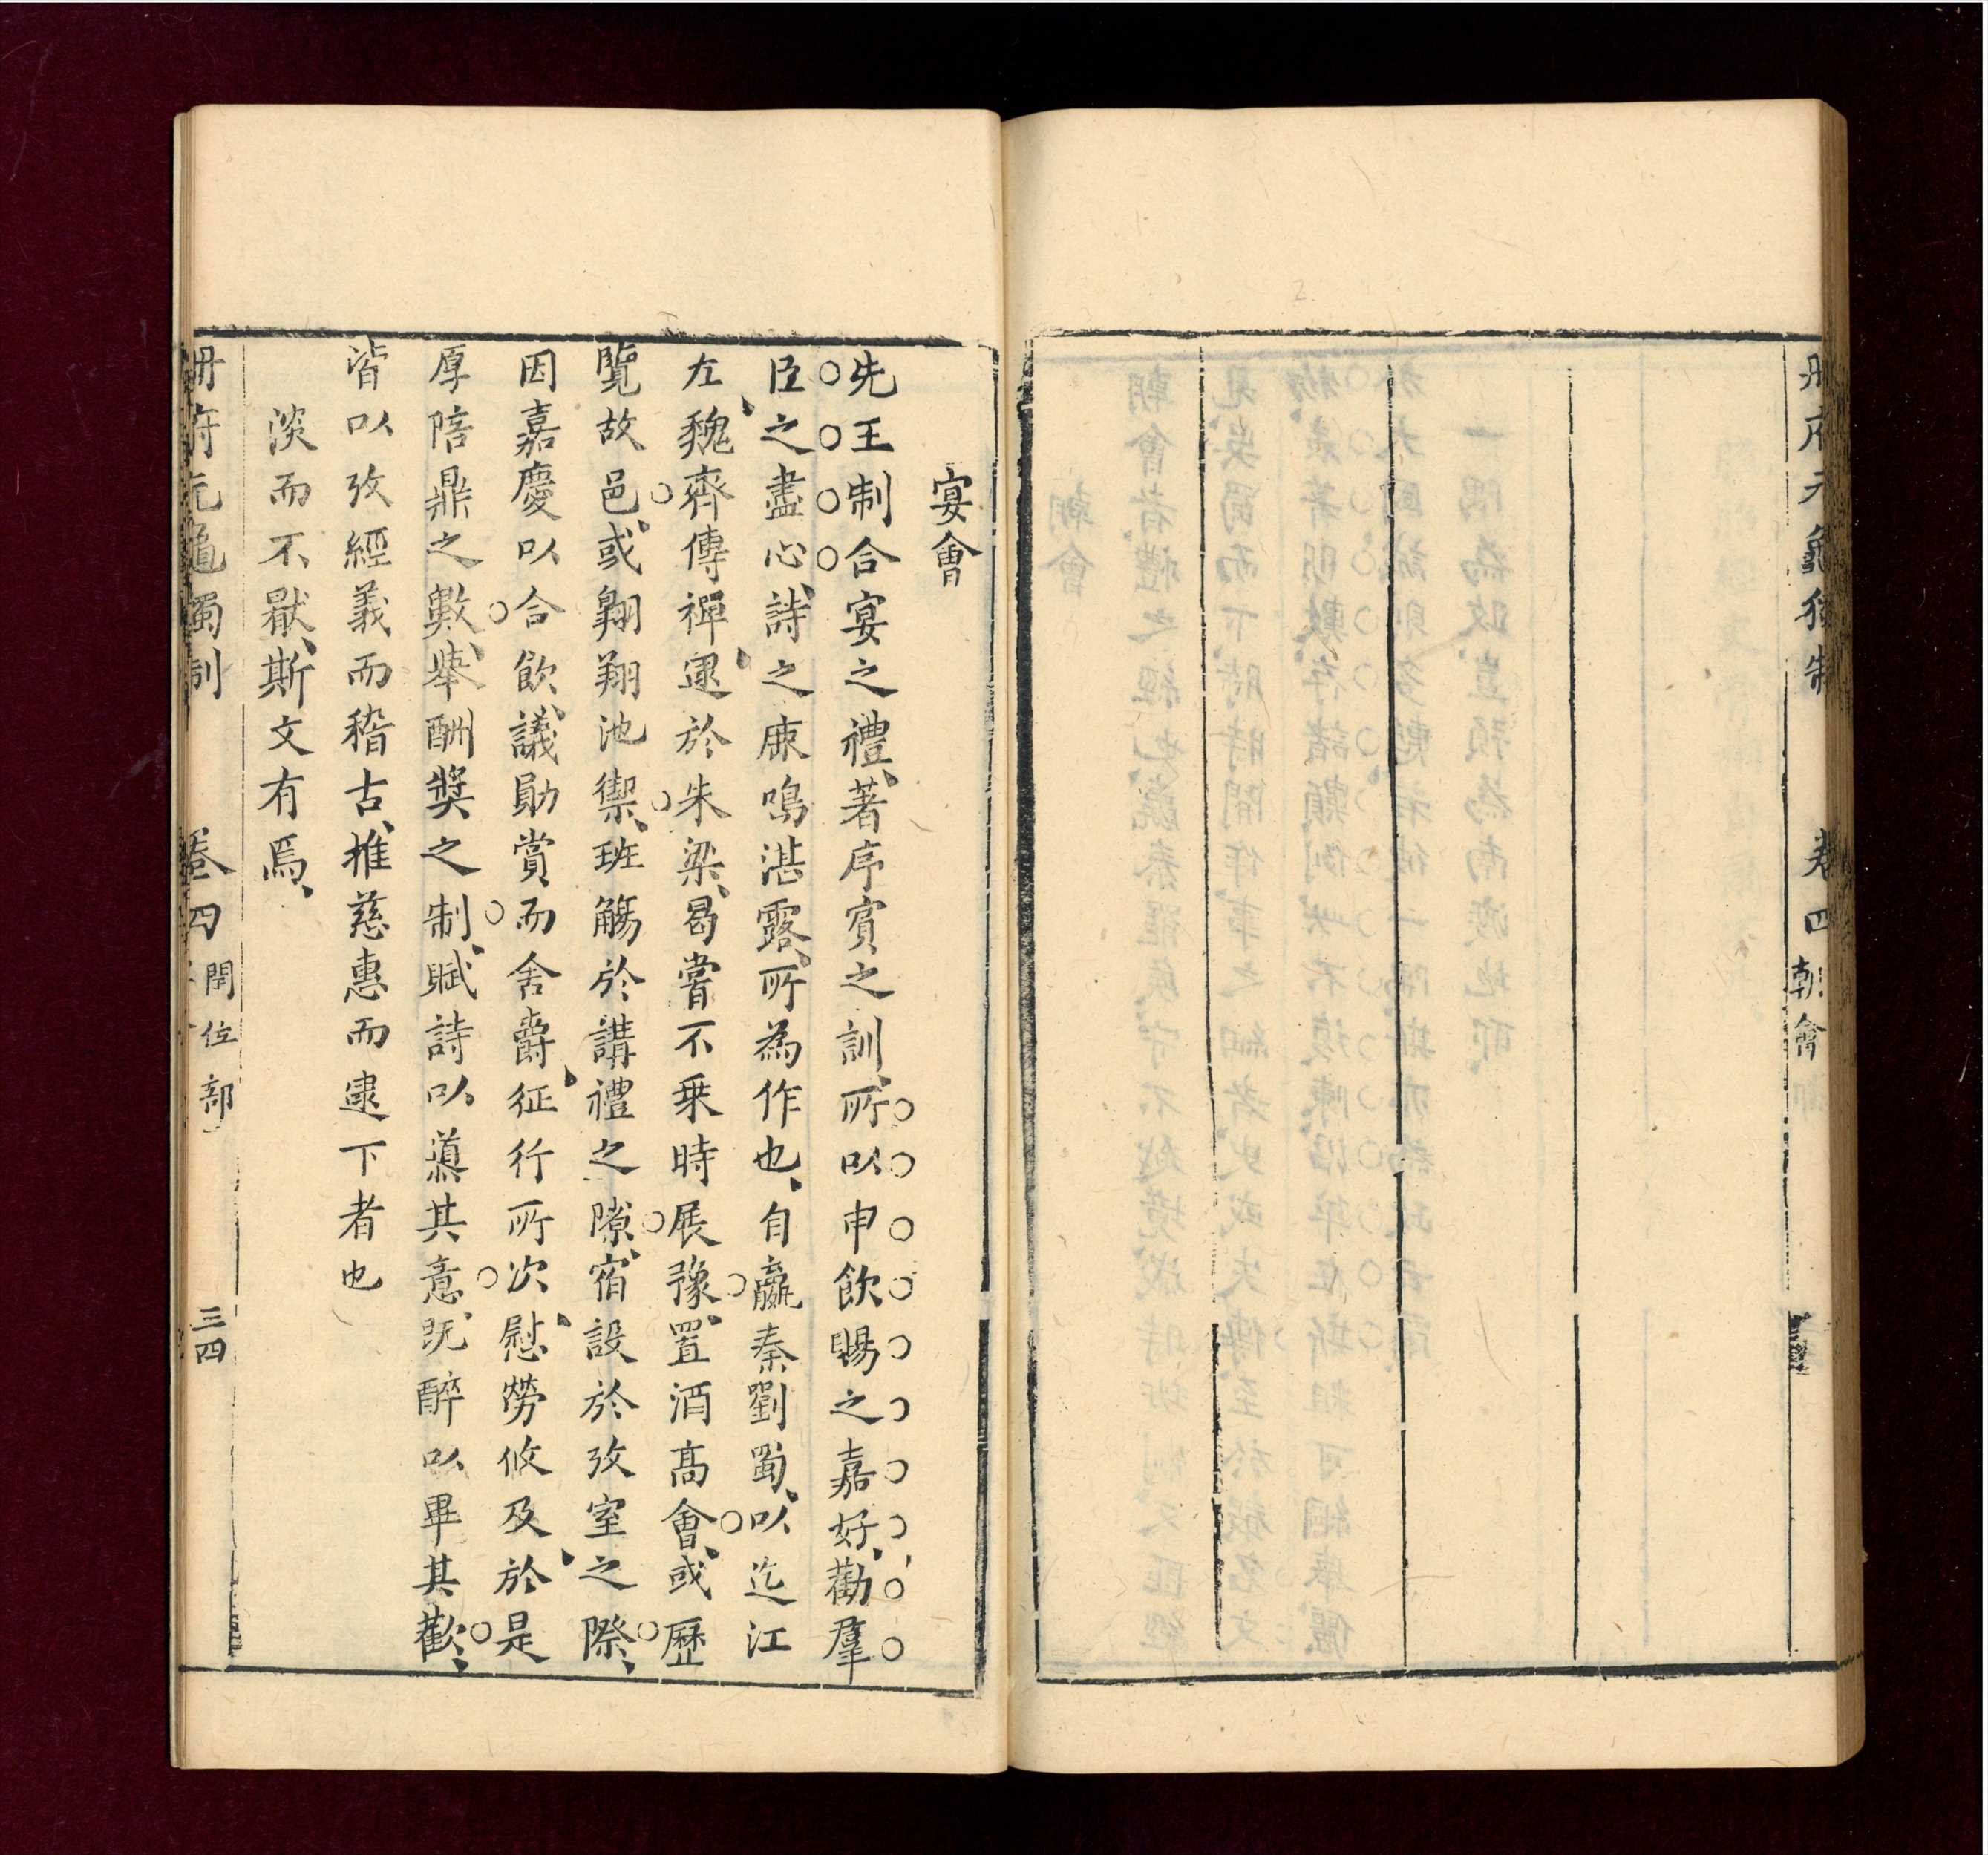 册府元龜獨制
卷四
朝會
宴會
先王制合宴之禮、著序賓之訓、所以申飲賜之嘉好、勸羣
臣之盡心、詩之鹿鳴湛露、所為作也、自嬴秦劉蜀、以迄江
左、魏齊傳禪、逮於朱梁、曷嘗不乗時展豫、置酒高會、或歷
覽故邑、或翱翔池籞、班觴於講禮之隙、宿設於攷室之際、
因嘉慶以合飲、議勛賞而舍爵、征行所次、慰勞攸及、於是
厚陪鼎之數、舉酬獎之制、賦詩以導其意、既醉以畢其歡、
皆以攷經義而稽古、推慈惠而逮下者也
淡而不厭、斯文有焉、
册府元龜獨制
卷四
閏位部
三四